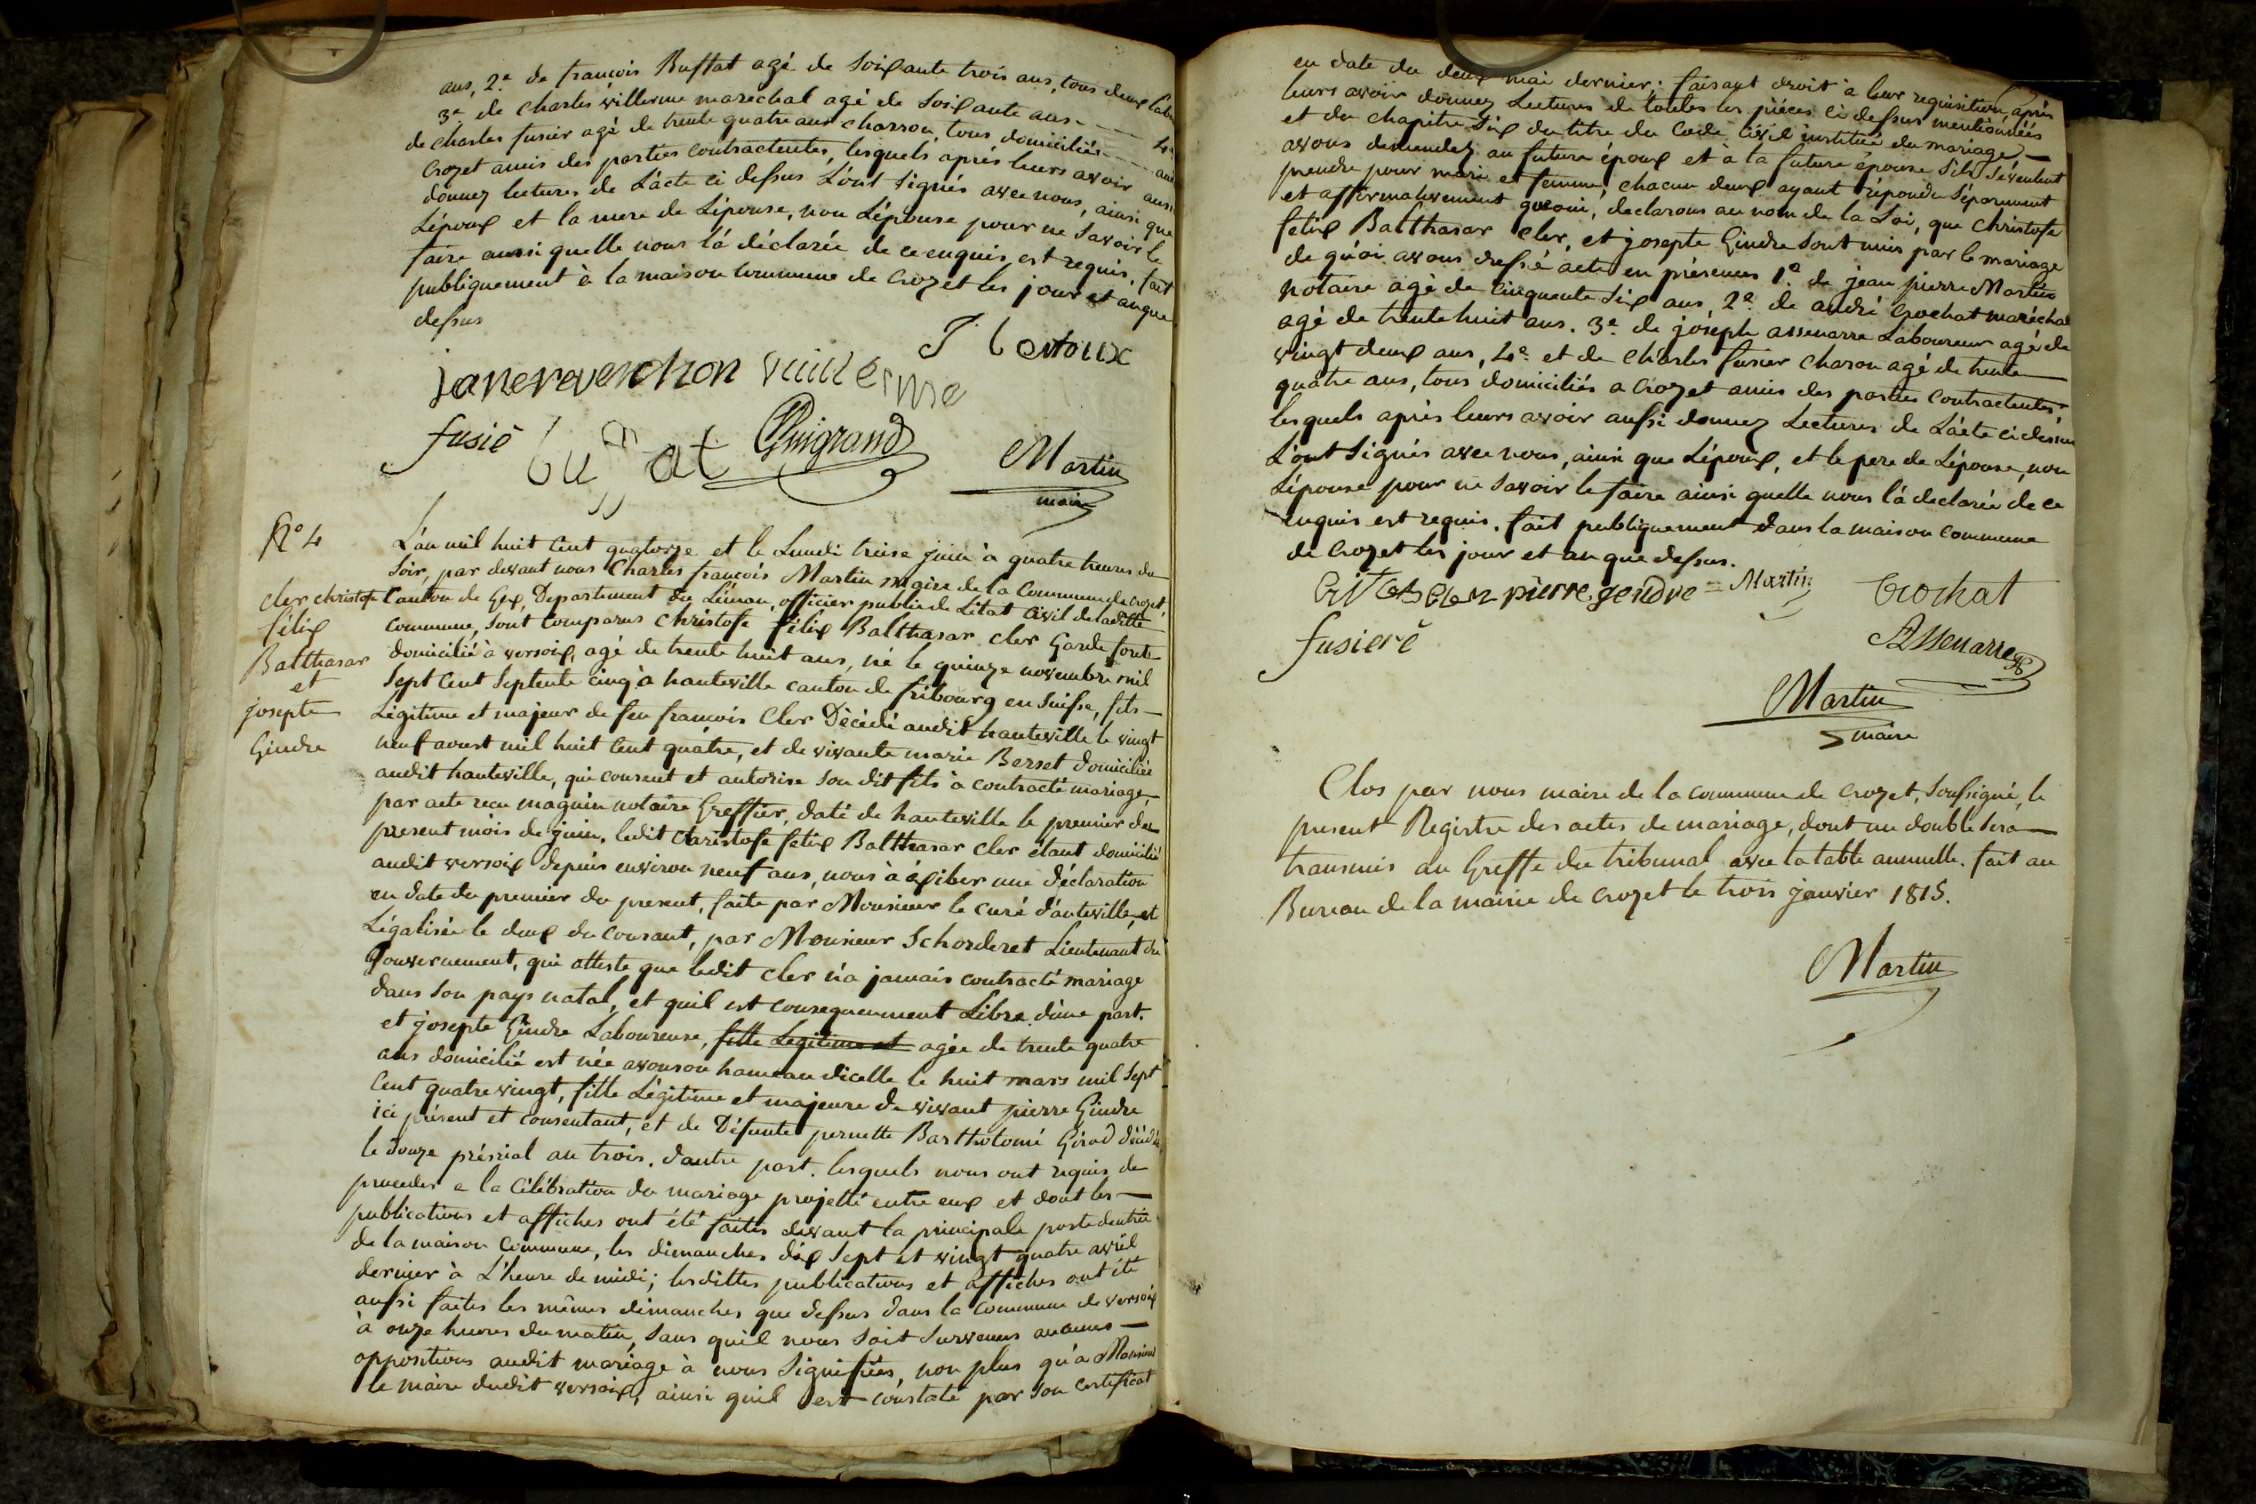 ans, 2e. de françois Buffat agé de soixante trois ans, tous deux labo
3e de Charles villerme marechal agé de soixante ans
de charles fusier agé de trente quatre ans charron, tous domiciliés
Crozet amis des parties contractentes, lesquels aprés leurs avoir aussi
donnez lectures de L'acte ci dessus L'ont signés avec nous, ainsi que
L'époux et la mere de L'épouse, non L'épouse pour ne savoir le
faire ainsi quelle nous la déclarée de ce enquis est requis, fait
publiquement à la maison commune de Crozet les jour et an que
dessus
janerevenchon vuillerme
fusié buffat Guigrand
Martin
maire
N° 4
cler christofe
félix
Balthasar
et
josepte
Gindre
L'an mil huit Cent quatorze et le Lundi treise juin à quatre heures du
soir, par devant nous Charles françois Martin maire de la Commune de Crozet,
Canton de Gex, Departement du Léman, officier public de L'état Civil de laditte
Commune, sont Comparus Christofe félix Balthasar cler Garde foret
domicilié à versoix, agé de trente huit ans, né le quinze novembre mil
sept Cent septente cinq à hauteville canton de fribourg en suisse, fils
Légitime et majeur de feu françois Cler Décédé audit hauteville le vingt
neuf avoust mil huit Cent quatre, et de vivante marie Berset domiciliée
audit hauteville, qui consent et autorise son dit fils à contracté mariage,
par acte recu magnin notaire Greffier, daté de hauteville le premier du
present mois de juin, ledit Christofe felix Balthasar cler étant domicilié
audit versoix depuis environ neuf ans, nous à éxiber une déclaration
en date du premier du present, faite par Monsieur le Curé d'auteville, et
Légalisée le deux du courant, par Monsieur Schorderet Lieutenant du
Gouvernement, qui atteste que ledit cler n'a jamais contracté mariage
dans son pays natal, et quil est consequenment Libre d'une part.
et josepte Gindre Laboureuse, fille Legitime et agée de trente quatre
ans domicilié est née avouson hameau dicelle le huit mars mil sept
Cent quatre vingt, fille Légitime et majeure de vivant pierre Gindre
ici présent et consentant, et de Défunte pernette Bartholomé Girod décédée
le douze prérial an trois. d'autre part. lesquels nous ont requis de
proceder a la Célébration du mariage projetté entre eux et dont les
publications et affiches ont été faites devant la principale porte dentrée
de la maison Commune, les dimanches dix sept et vingt quatre avril
dernier à L'heure de midi; lesdittes publications et affiches ont été
aussi faites les mêmes dimanches que dessus dans la Commune de versoix
à onze heures du matin, sans quil nous soit survenus aucunes
oppositions audit mariage à nous signifiées, non plus qu'a Monsieur
le maire dudit versoix, ainsi quil est constaté par son certificat
en date du deux mai dernier; faisant droit à leur requisition, aprés
leurs avoir donnez Lectures de toutes les piéces ci dessus mentionnées
et du chapitre six du titre du Code Civil institué du mariage,
avons demandez au future époux et à la future épouse s'ils se veulent
prendre pour mari et femme; chacun deux ayant répondu séparement
et affirmativement que oui, declarons au nom de la Loi, que Christofe
félix Balthasar cler, et josepte Gindre sont unis par le mariage
de quoi avons dressé acte en présences 1e. de jean pierre Martin
notaire agé de Cinquante six ans, 2e. de andré Crochat maréchal
agé de trente huit ans. 3e. de joseph assenarre Laboureur agé de
vingt deux ans, 4e. et de Charles fusier charon agé de trente
quatre ans, tous domiciliés a Crozet amis des parties contractentes,
lesquels aprés leurs avoir aussi donnez Lectures de L'acte ci dessus
L'ont signés avec nous, ainsi que L'époux, et le pere de L'épouse, non
L'épouse pour ne savoir le faire ainsi quelle nous la declarée de ce
enquis est requis. fait publiquement dans la maison commune
de Crozet les jour et an que dessus.
pierre gendre = Martin Crochat
fusieré Assenarre
Martin
maire
Clos par nous maire de la commune de Crozet, soussigné, le
present Registre des actes de mariage, dont un double sera
transmis au Greffe du tribunal avec la table annuelle. fait au
Bureau de la mairie de Crozet le trois janvier 1815.
Martin